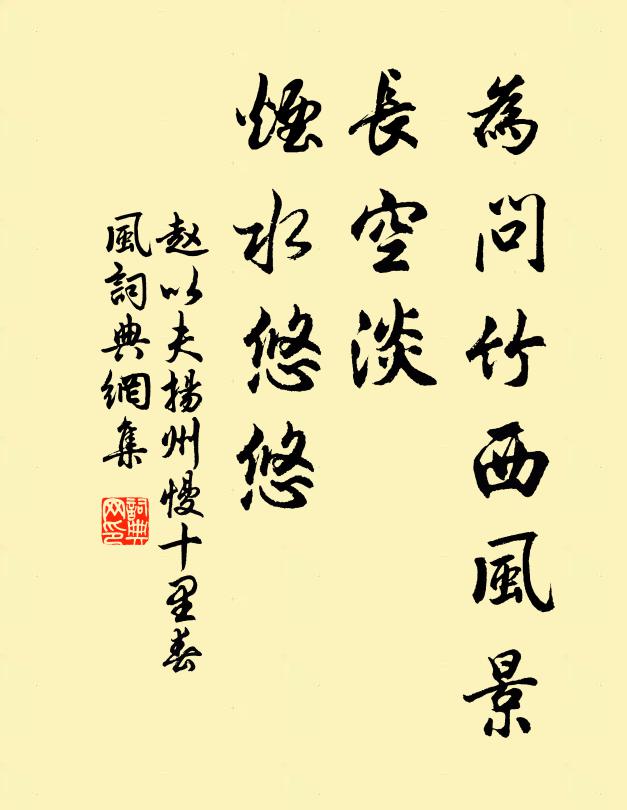 為問竹西風景
長空淡
煙水悠悠
赵以夫揚州慢十里春
風詞典網集
詞典
网印